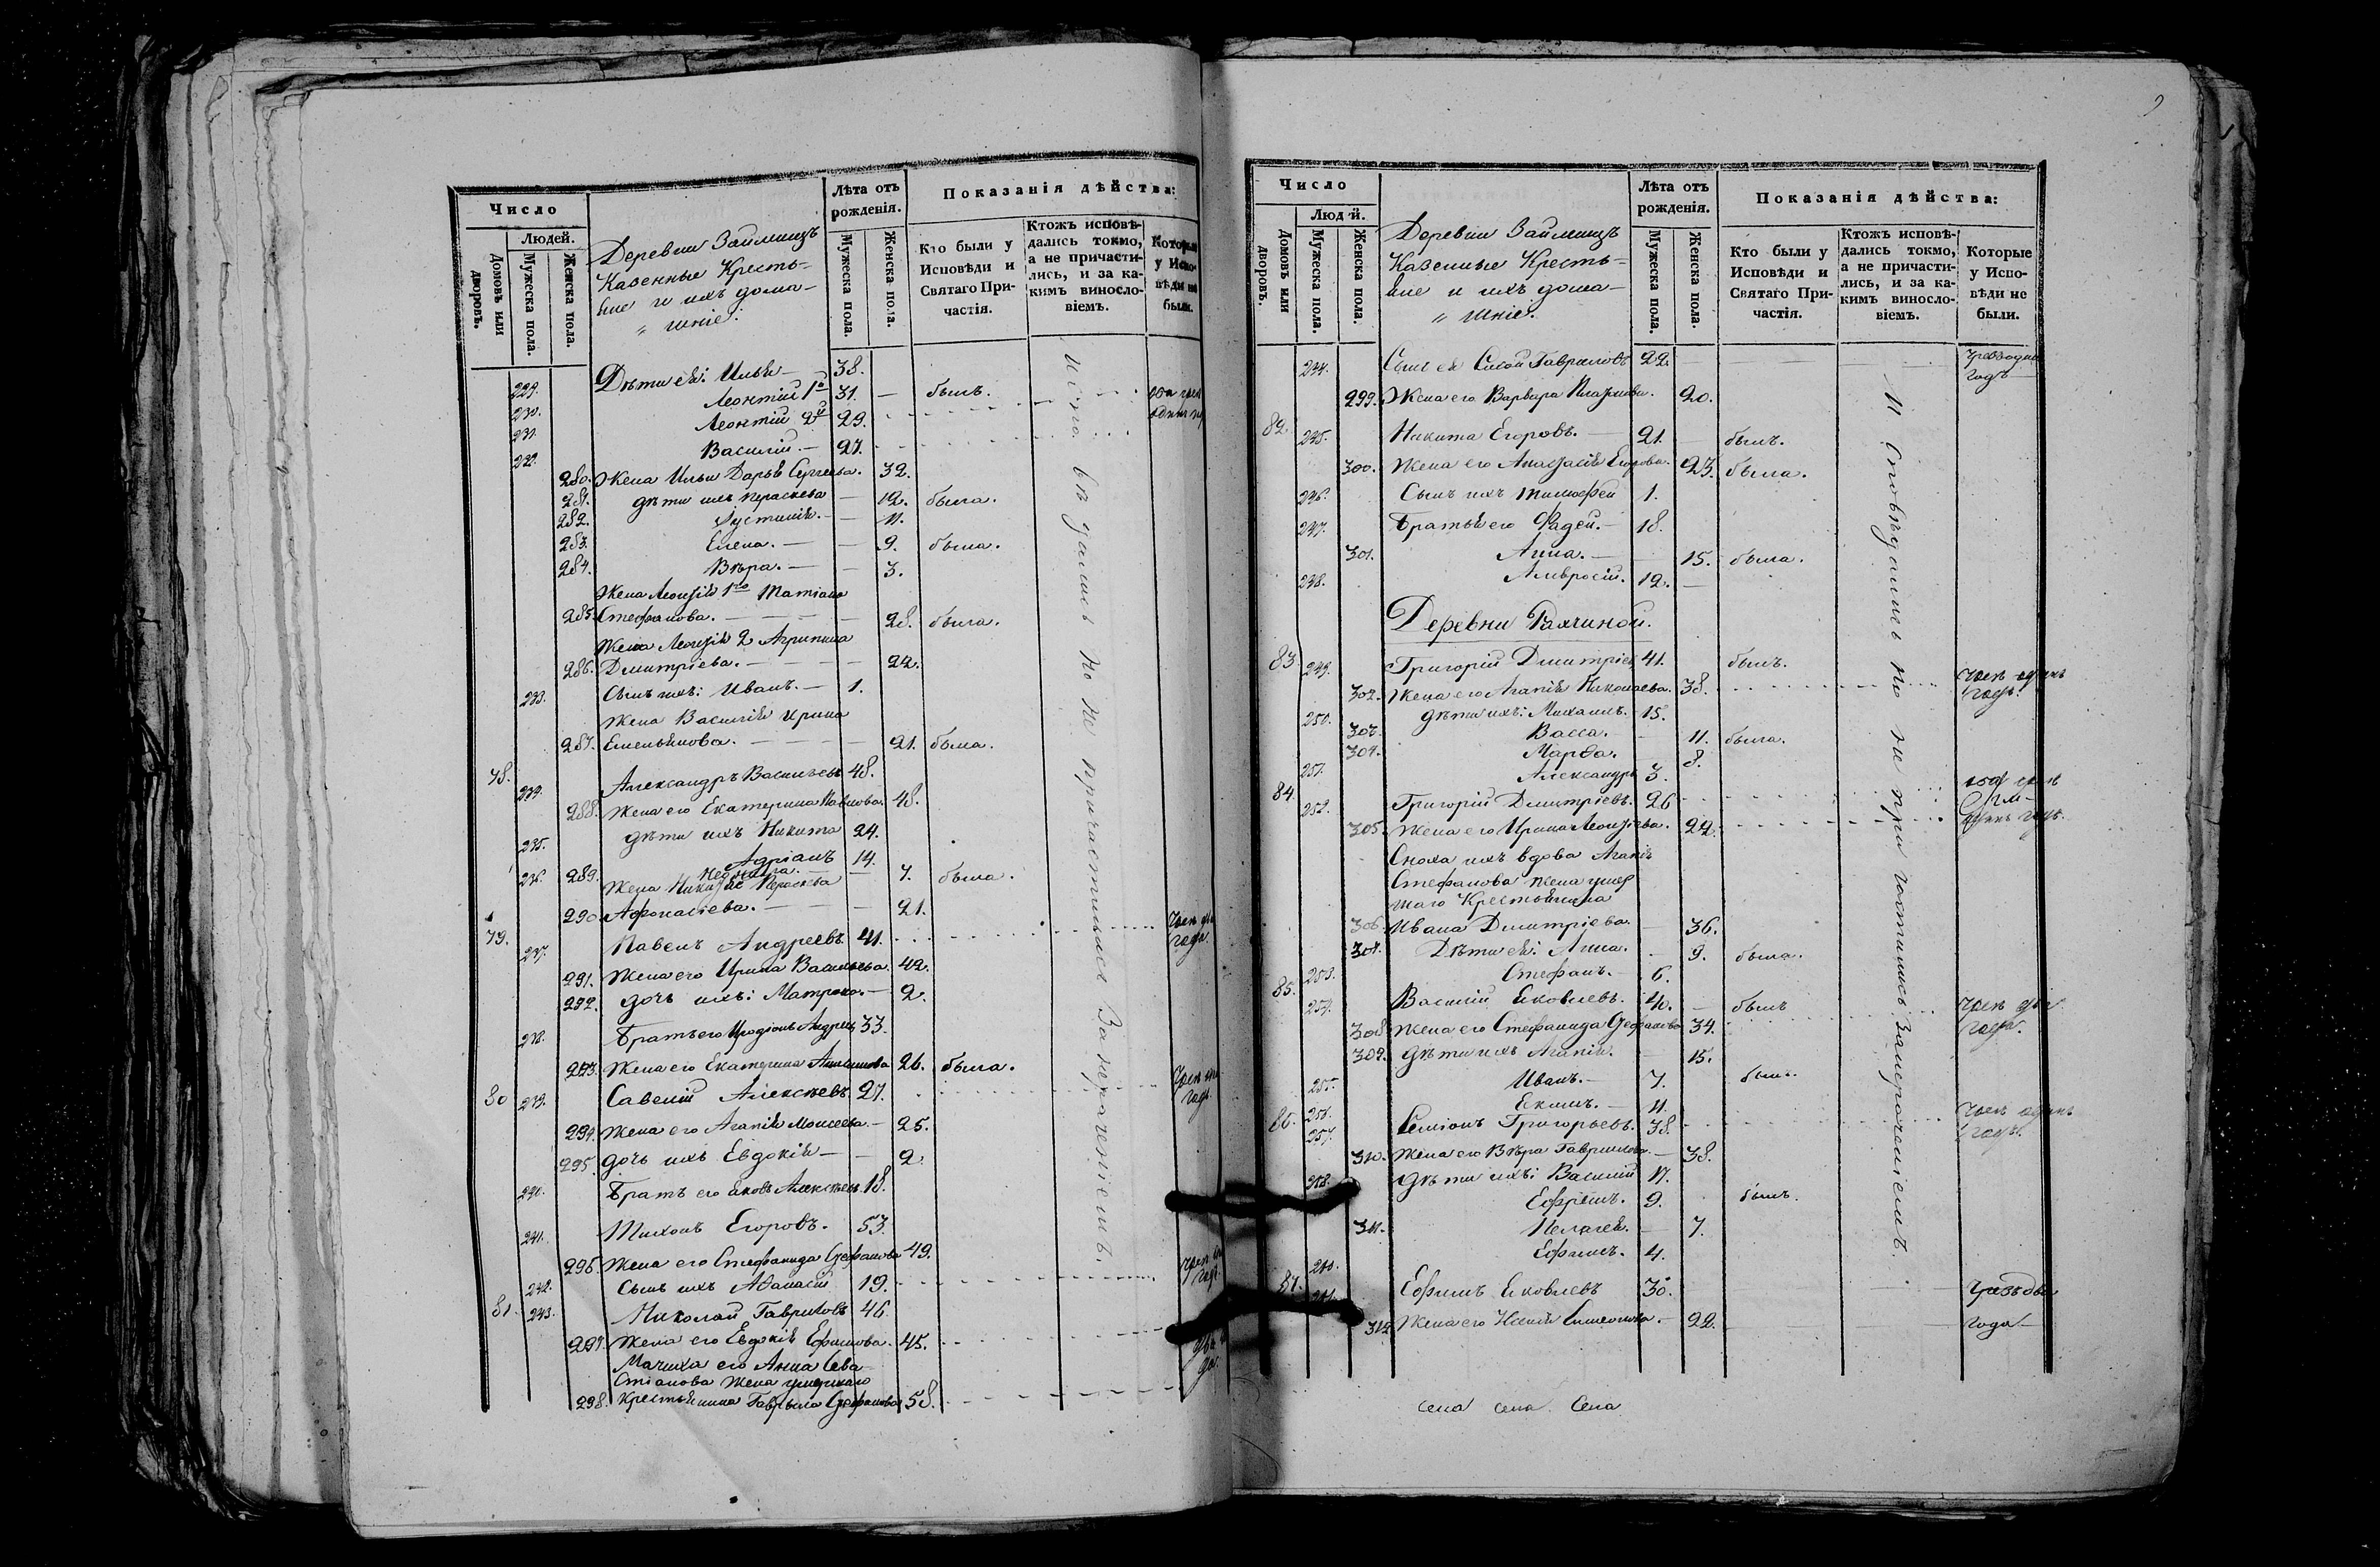 Число
Людей.
Домовъ или дворовъ.
Мужеска пола.
Женска пола.
Деревни Займищъ
Казенные Кресть-
яне и ихъ дома-
„ шніе.
Лѣта отъ рожденія.
Мужеска пола.
Женска пола.
Показанія дѣйства:
Кто были у Исповѣди и Святаго Причастія.
Ктожъ исповѣдались токмо, а не причастились, и за какимъ винословіемъ.
Которые у Исповѣди не были.
229. Дѣти ея: Илья — 38.
230. Леонтій 1й 31. — былъ.
231. Леонтій 2й 29.
232. Василій — 27.
280. Жена Ильи Дарья Сергеева. 32.
281. дѣти ихъ Параскева — 12. была.
282. Іустинія. — 11.
283. Елена. — — 9. была.
284. Вѣра. — — 3.
Жена Леонтія 1го Татіана
285. Стефанова. — 28. была.
Жена Леонтія 2 Агрипина
286. Дмитріева. — 22.
233. Сынъ ихъ: Иванъ. — 1.
Жена Василія Ирина
287. Емельянова. — 21. была.
78. 234. Александръ Васильевъ 48.
288. Жена его Екатерина Павлова. 48.
235. дѣти ихъ Никита 24.
236. Адріанъ 14.
289. 7. была.
Жена Никиты Параскева
290. Афонасіева. — 21.
79. 237. Павелъ Андреевъ 41.
291. Жена его Ирина Васильева. 42.
292. дочь ихъ: Матрона. — 2.
238. Братъ его Иродіонъ Андреевъ 33.
293. Жена его Екатерина 26. была.
80 239. Савелій Алексѣевъ 27.
294. Жена его Агапія Моисеева — 25.
295. дочь ихъ Евдокія — — 2
240. Братъ его Яковъ Алексѣевъ 18.
241. Тихонъ Егоровъ. 53.
296. Жена его Стефанида Стефанова 49.
242. Сынъ ихъ Афанасій 19.
81. 243. Николай Гавриловъ 46
297. Жена его Евдокія Ефимова. 45.
Мачиха его Анна Сева-
стіанова жена умершаго
298. Крестьянина Гаврила Стефанова 58.
Исповѣдались но не причастились За нераченіемъ.
Число
Людей.
Домовъ или дворовъ.
Мужеска пола.
Женска пола.
Деревни Займищъ
Казенные Кресть-
яне и ихъ дома-
„ шніе.
Лѣта отъ рожденія.
Мужеска пола.
Женска пола.
Показанія дѣйства:
Кто были у Исповѣди и Святаго Причастія.
Ктожъ исповѣдались токмо, а не причастились, и за какимъ винословіемъ.
Которые у Исповѣди не были.
244. Сынъ ея Гавриловъ 22 годъ
299. Жена его Варвара 20.
82. 245. Никита Егоровъ. — 21. былъ.
300. Жена его Анастасія Егорова. 23. была.
246. Сынъ ихъ Тимофей 1.
247. Братья его Фадей. — 18.
301. Анна. — 15. была.
248. Амвросій. 12.
Деревни
83. 249. Григорій Дмитріевъ 41. былъ. Чрезъ одинъ годъ.
302. Жена его Агапія Николаева. 38.
250. дѣти ихъ: Михаилъ. 15.
303. Васса. 11. была.
304. Марфа. 8.
251. Александръ 3.
84. 252. Григорій Дмитріевъ. 26
305. Жена его Ирина Леонтіева. 22. одинъ годъ.
Сноха ихъ вдова Агапія
Стефанова жена умер
шаго Крестьянина
306. Ивана Дмитріева. 36.
307. Дѣти ея: Анна. 9. была.
253. Стефанъ. — 6.
85. 254. Василій Яковлевъ. 40. былъ Чрезъ два года.
308. Жена его Стефанида Стефанова 34.
309. дѣти ихъ Агапія. 15.
255. Иванъ. — 7. былъ.
256. Екимъ. — 4.
86. 257. Симіонъ Григорьевъ. 38. Чрезъ одинъ годъ.
310. Жена его Вѣра Гаврилова. — 38.
258. дѣти ихъ: Василій 17.
Ефремъ. 9. былъ.
311. Пелагея. 7.
260. Ефимъ. 4.
87. 261. Ефимъ Яковлевъ 30. Чрезъ два
312. Жена его Симеонова. — 22. года —
Исповѣдались но не причастились За нераченіемъ.
села села. Села